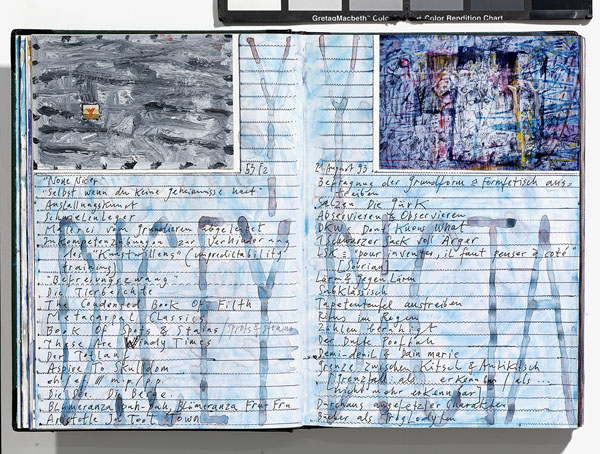 GretagMacbeth™ Color Rendition Chart
"None Nicer"
"Selbst wenn du keine Geheimnisse hast"
Ausfallungskunst
Schweinleger
Malerei vom Grundieren abgeleitet
Inkompetenzübungen zur Verhinderung
des "Kunstwollens" (unpredictability
training)
"Befreiungszwang"
Die Tierbeichte
The Condensed Book Of Filth
Metacarpal Classics
Book Of Spots & Stains
These Are Windy Times
Der Totlauf
Aspire To Skulldom
m.p./p.p.
Die See. Die Berge.
Blümeranza Pah-Pah, Blümeranza Frou Frou
Aristotle In Toot Town
21 August 93
Befragung der Grundform & Formfetisch aus-
treiben
Salzen Die Türk
Abservieren & Observieren
DKW = Dont Know What
Schwarzer Sack voll Ärger
LSK = "pour inventer, il faut penser à coté"
[Souriau]
Lärm & gegen Lärm
Subklassisch
Tapetenteufel austreiben
Ruins im Regen
Zahlen beruhigt
Der Dufte Poolfall
Demi-denil & bain marie
Grenze zwischen Kitsch & Antikitsch
[Grenzfall als ... erkennbar als ...
nicht mehr erkennbar]
Durchaus angefetzter Charakter
Bücher als Troglodyten